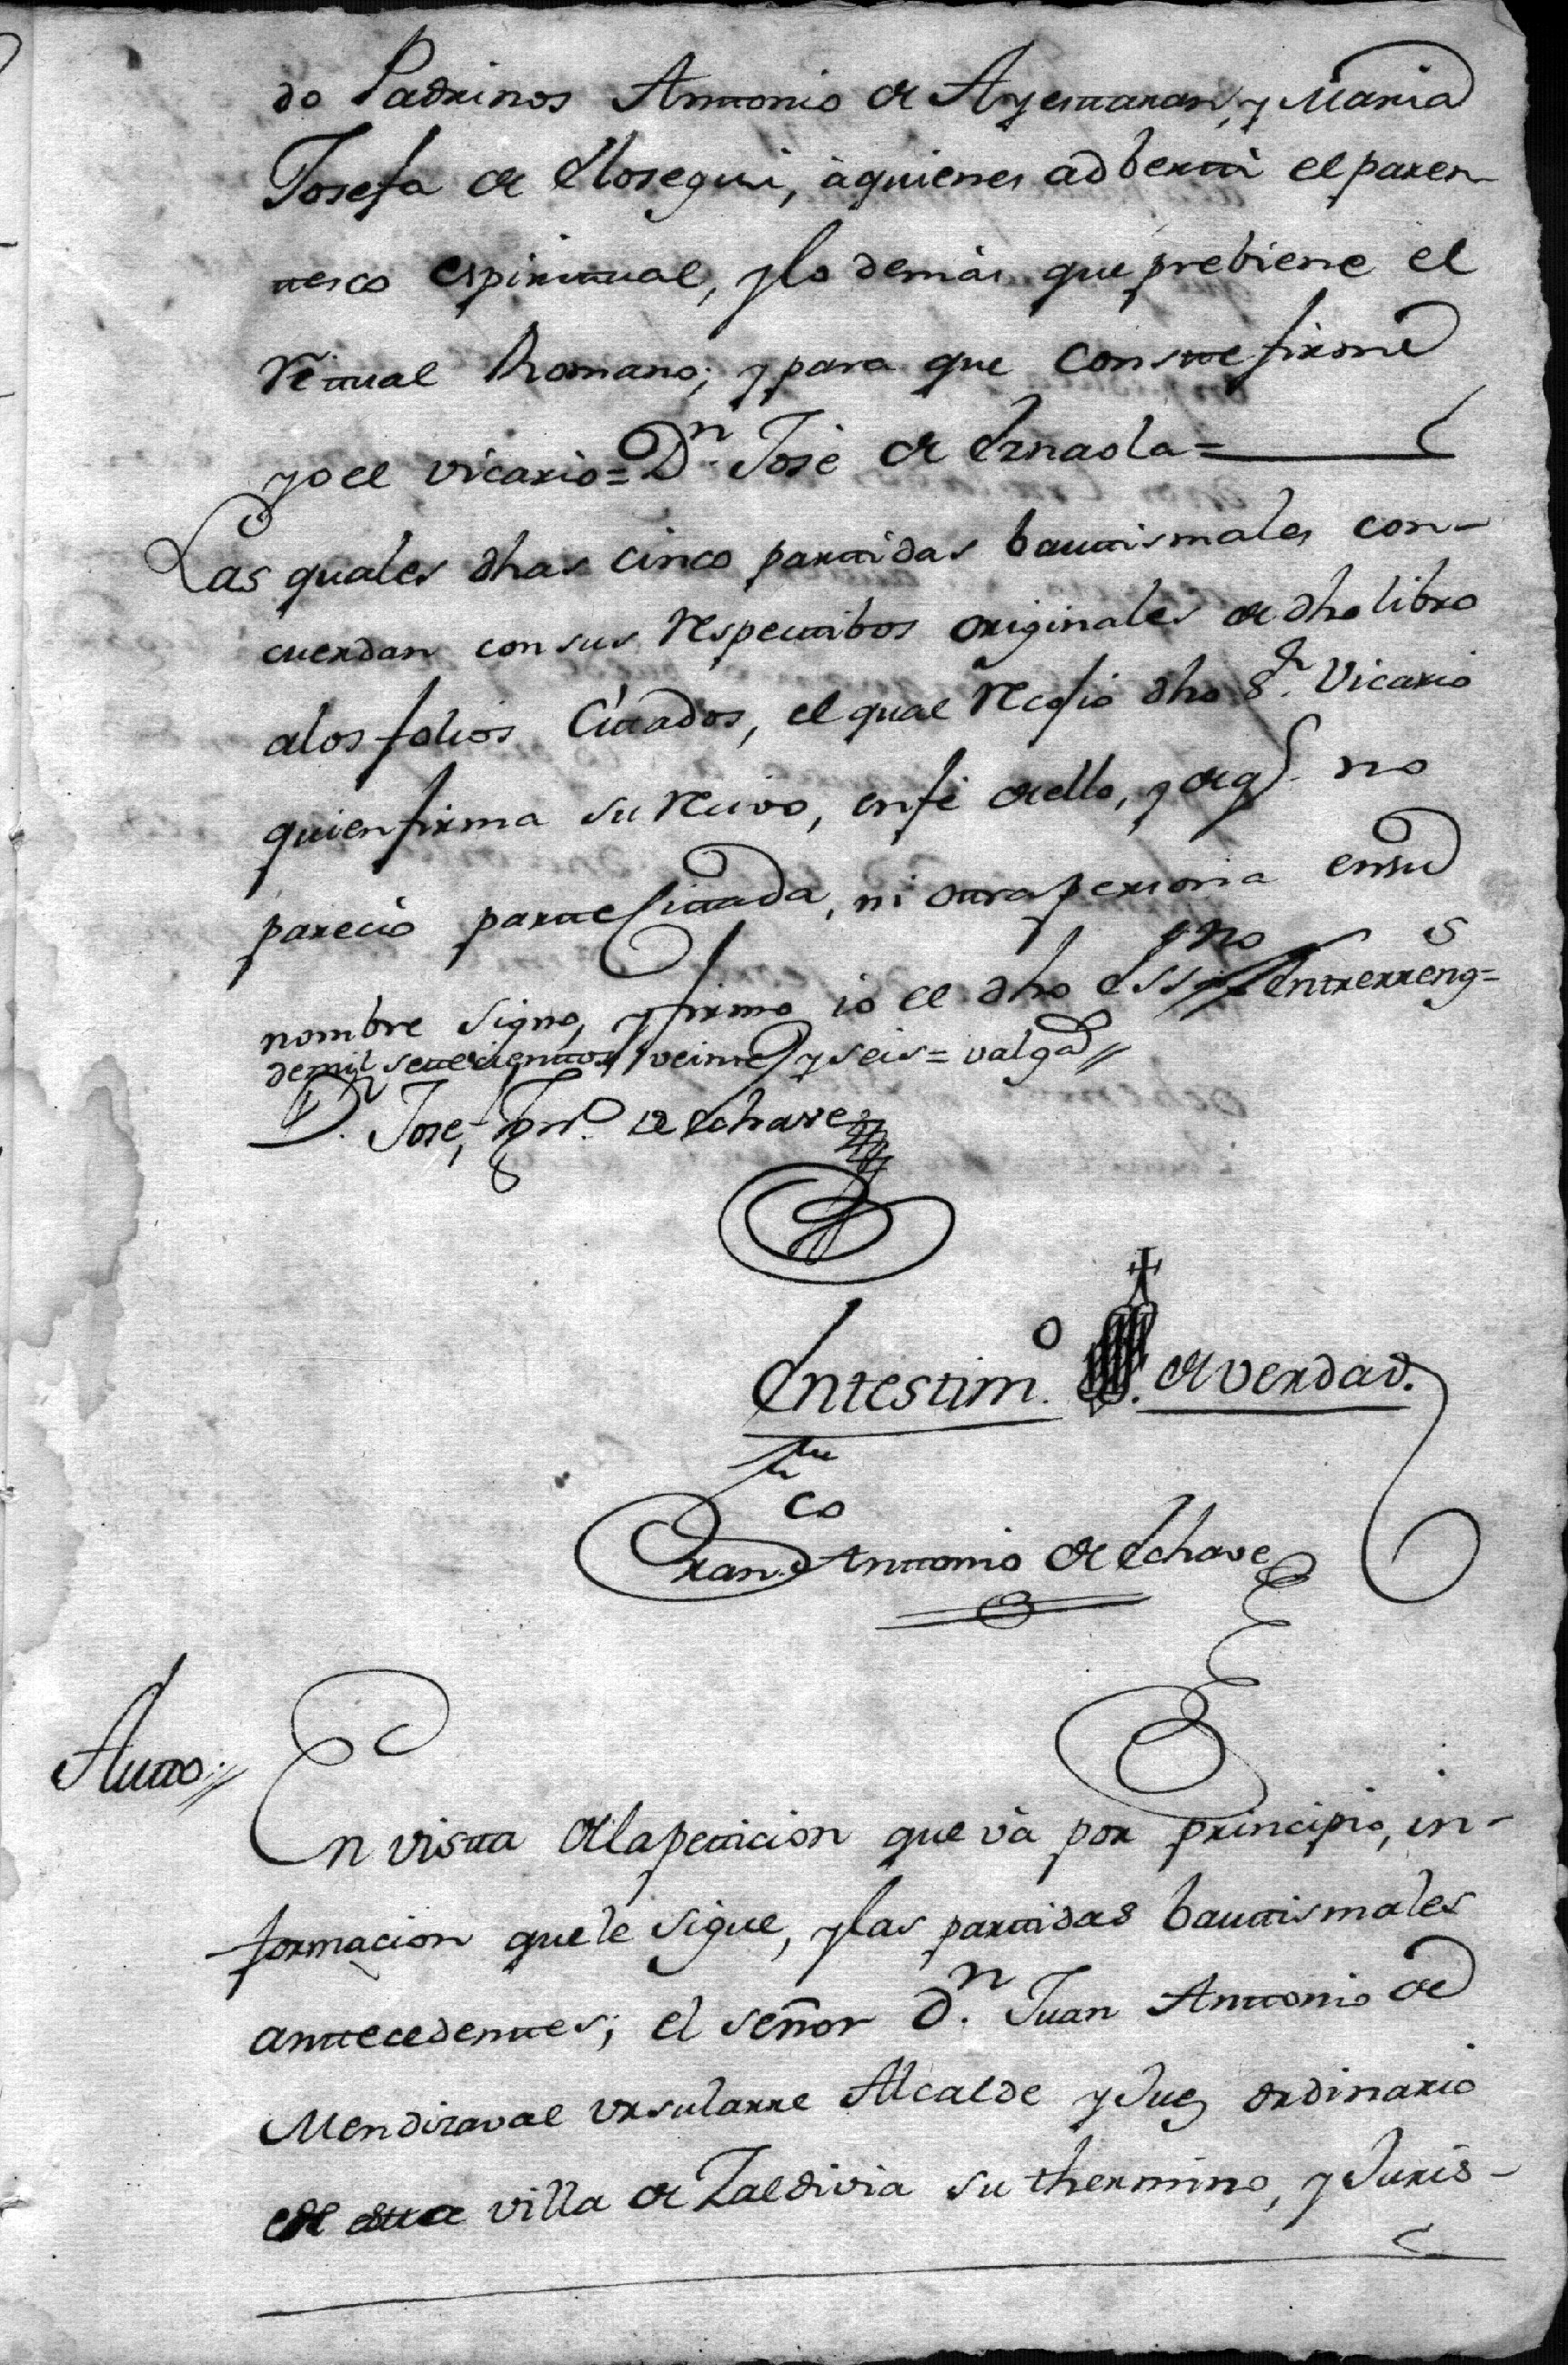 do Padrinos Anttonio de Ayesttaran, y Maria
Josefa de Elosegui, à quienes adberttì el paren-
ttesco espirittual, y lo demàs que prebiene el
Rittual Romano; y para que constte firmè
yo el vicario= Dn. Josè de Irnaola=
Las quales dhas cinco parttidas bauttismales con-
cuerdan con sus respecttibos originales de dho libro
a los folios Cittados, el qual recojio dho Sr. Vicario
quien firma su recivo, en fè de ello, y de q̃. no
pareciò partte Cittada, ni ottra persona en su
nombre signo, y firmo io el dho Essno Entrerrengs=
de mil settecienttos veintte y seis= valga//
Dn. Jose, Ign.o de Echave
En testim.o de verdad.
Fran.co Anttonio de Echave
Autto.//
En vistta de la petticion que và por principio, in-
formacion que le sigue, y las parttidas bauttismales
anttecedenttes; el señor Dn. Juan Anttonio de
Mendizaval Ursularre Alcalde y Juez ordinario
de estta villa de Zaldivia su thermino, y Juris-